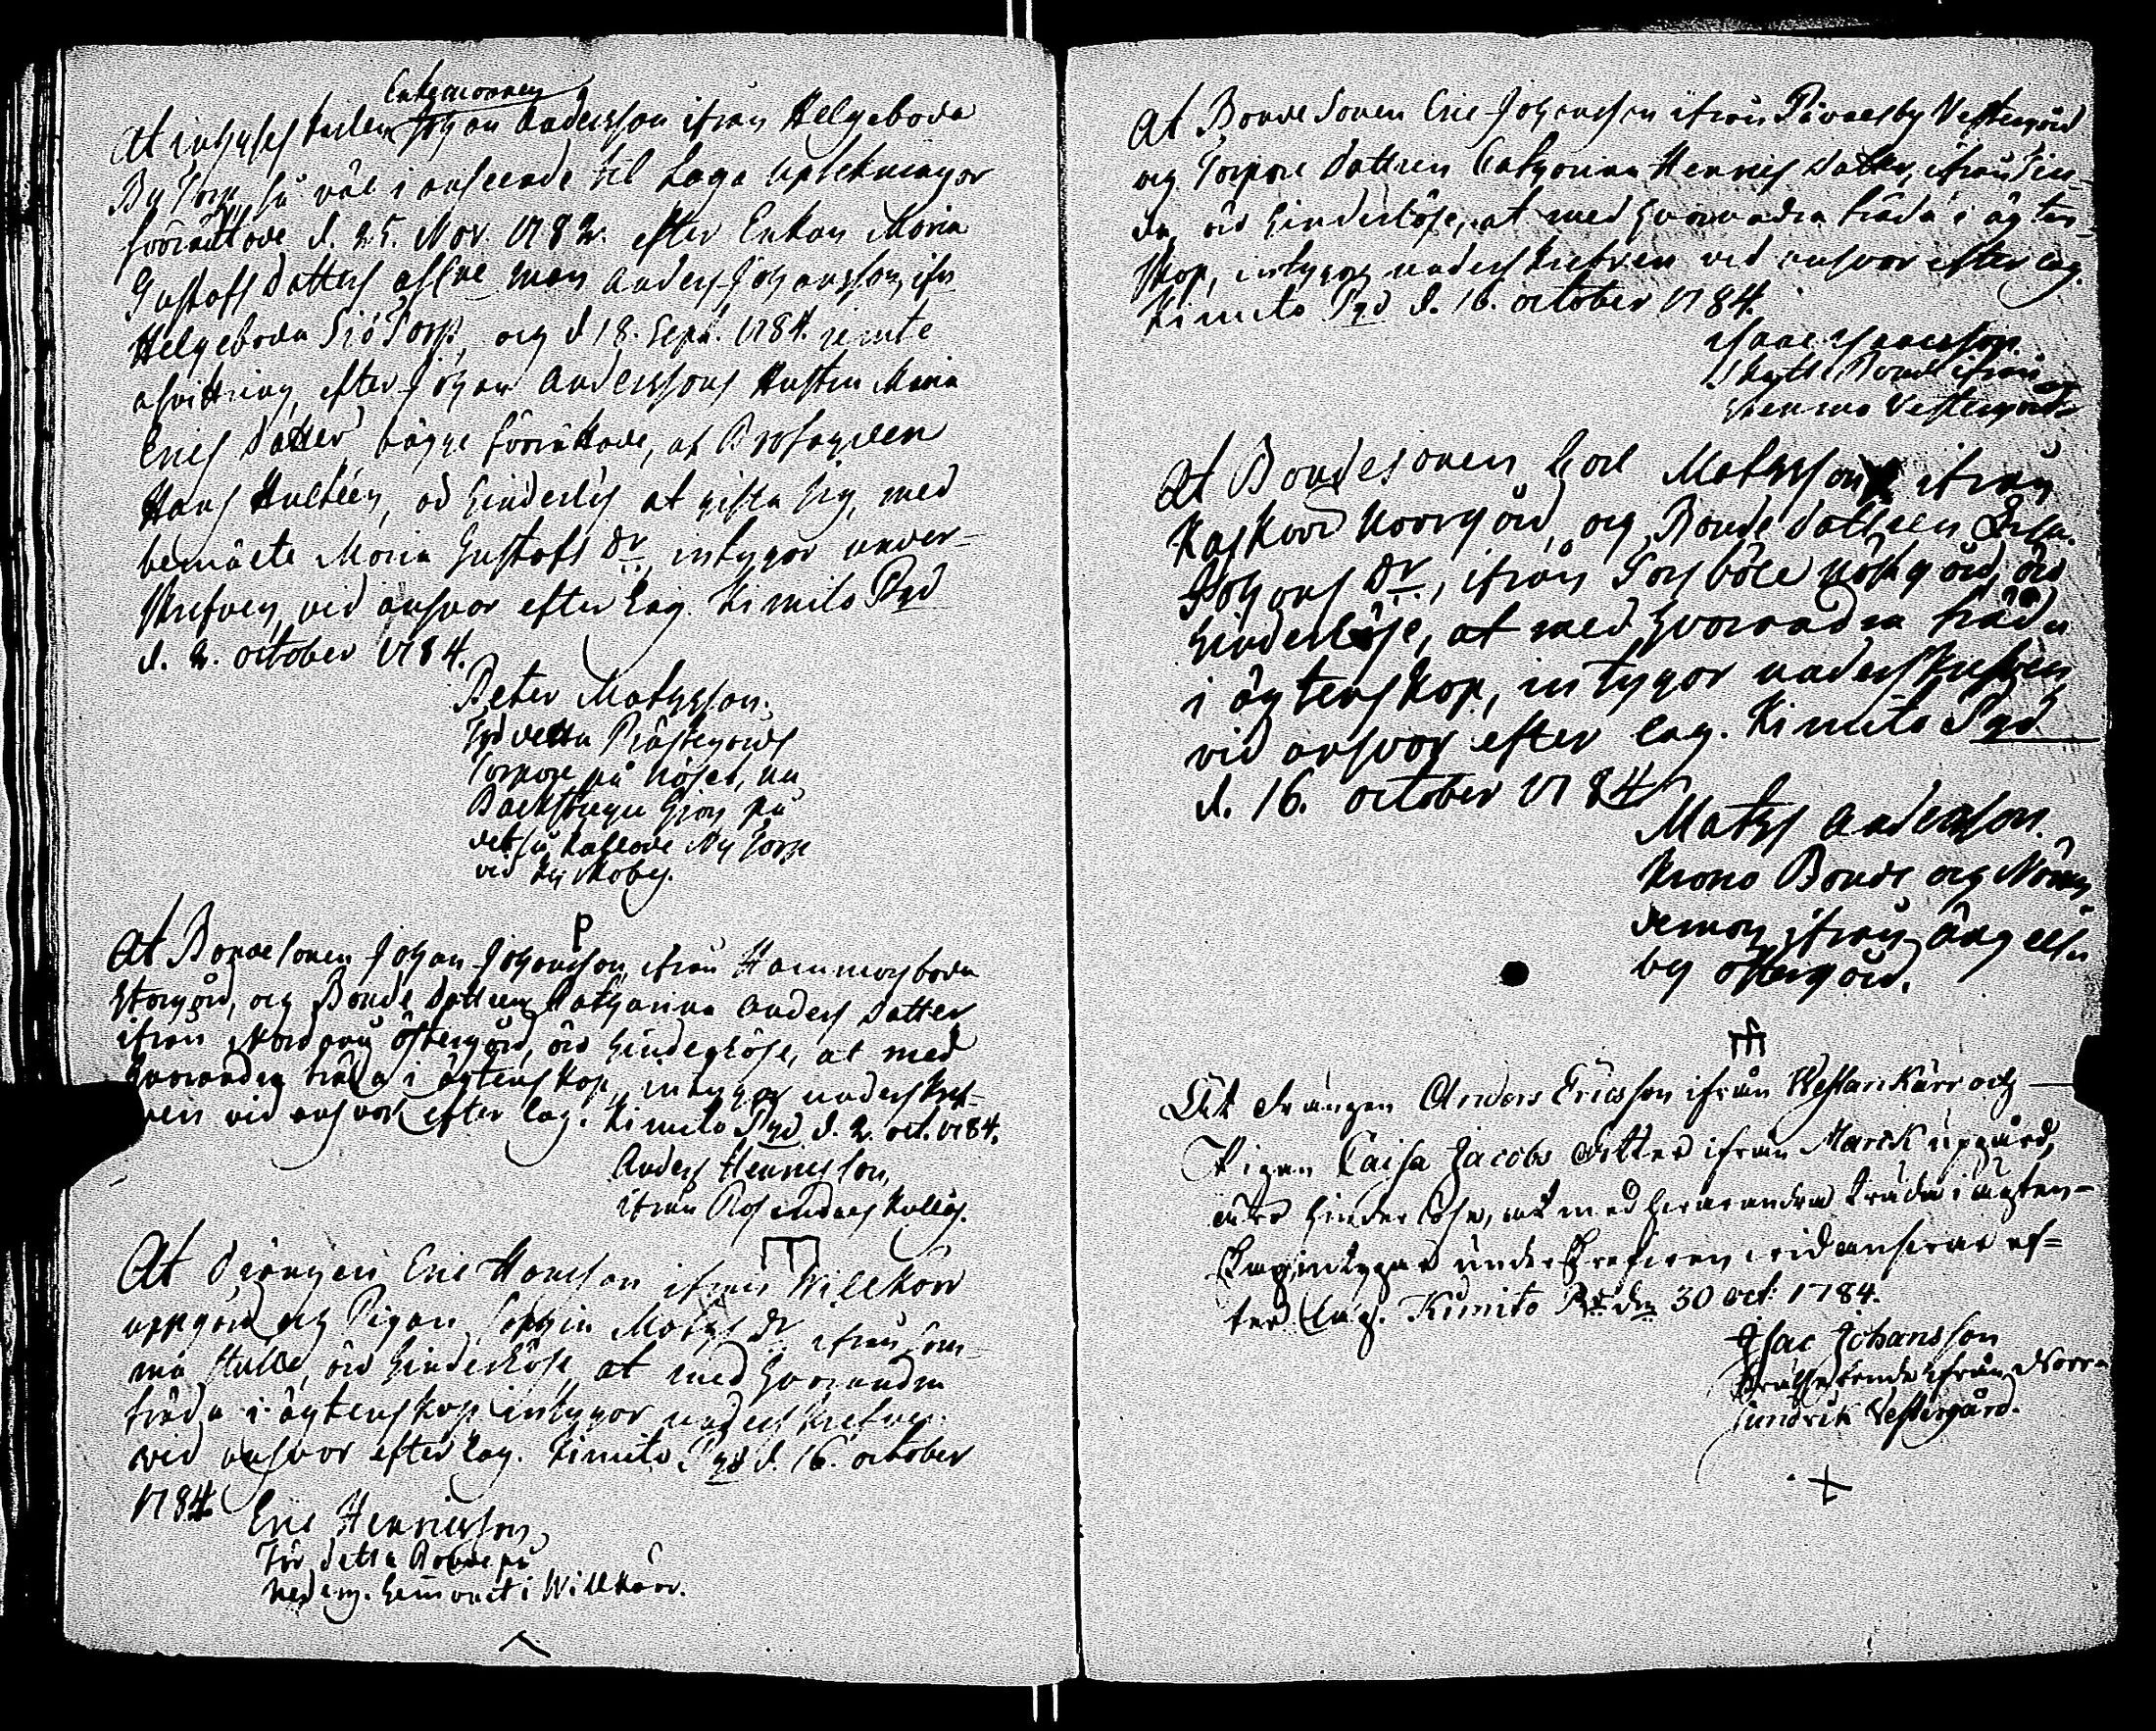 Enkemannen
At inhyses karlen Johan Andersson ifrån Helgeboda
By Torp, så väl i anseende til Laga uptekningar
förrättade d. 25. Nov. 1782. efter Enkan Maria
Gustafs Datters aflne man Anders Johansson, ifr.
Helgeboda Siö Torp, och d. 18. Sept. 1784. jemte
afvittring, efter Johan Anderssons Hustru Maria
Erics Datter, bägge förrättade, af Brofogden
Hans Hultéen, är hinderlös at gifta sig, med
bemälte Maria Gustafs Dr. intygar under-
skrefven, vid answar efter Lag. Kimito Pgd
d. 2. october 1784.
Peter Matsson.
För detta Prästegårds
Torpare på nöset, nu
Backstugu hion på
det så kallade Ny Torp
vid Kyrkoby.
At Bondesonen Johan Johansson ifrån Hammarsboda
Storgård, och Bonde Dottren Catharina Anders Datter
ifrån Nordanå Östergård, äro hinderlöse, at med
hvarandra träda i ägtenskap, intygar underskref-
ven vid answar efter lag. Kimito Pgd d. 2. oct. 1784.
Anders Henricsson,
ifrån Rosendals Kulla.
At Drängen Eric Hansson ifrån Willkärr
uppgård och Pigan Sophia Mats Dr ifrån Sam-
ma ställe, äro hinderlöse at med hvarandra
träda i ägtenskap intygar underskrefven
wid answar efter lag. Kimito Pgd d. 16. october
1784.
Eric Henricsson,
För detta Bonde på
Nederg. hemanet i Willkärr.
At Bonde Sonen Eric Johansson ifrån Påvalsby Vestergård
och Torpare Dottren Catharina Henrics Datter, ifrån Tin-
da, äro hinderlöse, at med hvarandra träda i ägten-
skap, intygar underskrefven vid answar efter lag.
Kimito Pgd d. 16. october 1784.
Isaac Isaacsson.
Skatte Bonde ifrån
Vestergård
At Bondesonen Carl Matsson ifrån
Kaskärr Norrgård, och Bonde Dottren Lisa
Johans Dr., ifrån Torsböle Wästgård, äro
hinderlöse, at med hvarandra träda
i ägtenskap, intygar underskrefven
vid answar efter lag. Kimito Pgd
d. 16. october 1784
Mats Andersson.
Krono Bonde och Näm-
deman ifrån Ängells-
by Östergård.
At drängen Anders Ericsson ifrån Westankärr och
Pigan Caisa Jacobs dotter ifrån Marck upgård,
äro hinderlöse, at med hvarandra träda i ägten-
skap, intygar underskrefven wid answar ef=
ter Lag. Kimito Pgd den 30 oct: 1784.
Isac Johansson
Skattebonde ifrån Norr-
sundvik Vestergård.